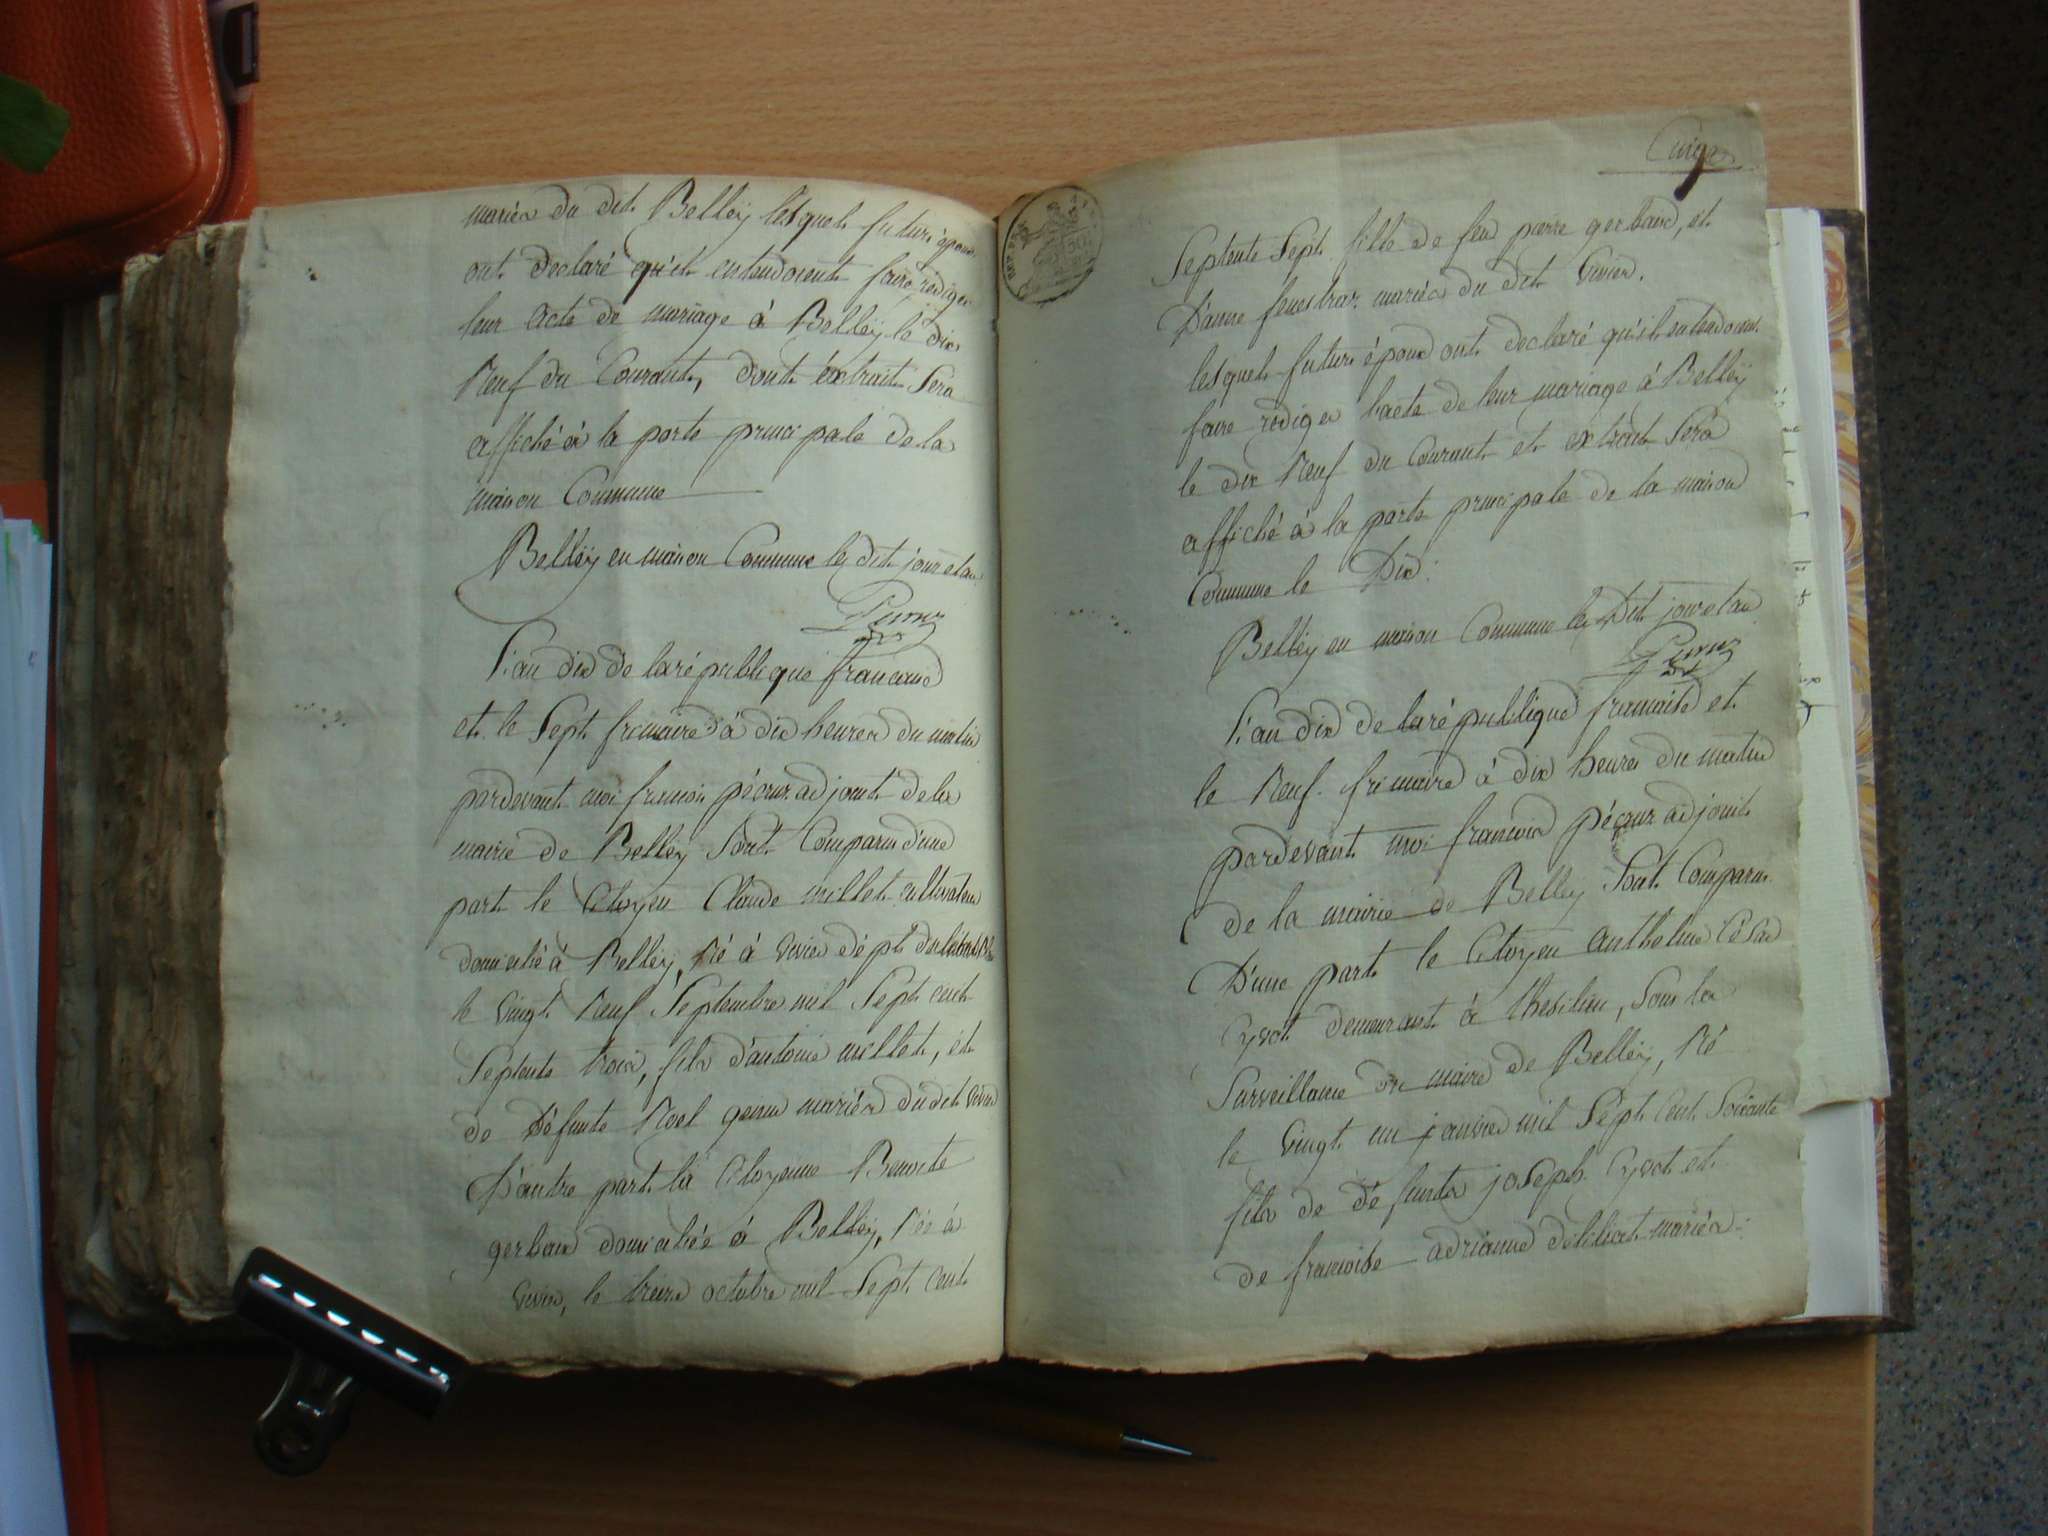 mariés du dit Belley lesquels futurs époux
ont declaré qu'ils entendoient faire rédiger
leur acte de mariage à Belley le dix
Neuf du Courant, dont extrait Sera
affiché à la porte principale de la
maison Commune
Belley en maison Commune les dit jour et an
L'an dix de la république francaise
et le Sept frimaire à dix heures du matin
pardevant moi francois pécour adjoint de la
mairie de Belley Sont Comparus d'une
part le Citoyen Claude millet cultivateur
domicilié à Belley, Né à Vivier dépt.
le Vingt Neuf Septembre mil Sept cent
Septente trois, fils d'antoine millet, et
de Défunte Noel mariés du dit
D'autre part la Citoyenne Benoite
gerbaud domiciliée à Belley, Née à
Vivier, le treize octobre mil Sept cent
Septente Sept fille de feu pierre gerbaud, et
D'anne fenestraz mariés du dit Vivier.
lesquels futurs époux ont declaré qu'ils entendoient
faire rédiger l'acte de leur mariage à Belley
le dix Neuf du Courant et extrait Sera
affiché à la porte principale de la maison
Commune le Dix.
Belley en maison Commune les Dit jour et an
L'an dix de la république francaise et
le Neuf frimaire à dix heures du matin
pardevant moi francois pécour adjoint
de la mairie de Belley Sont Comparus
D'une part le Citoyen anthelme César
Cyvot demeurant à thesilieu, Sous la
Surveillance du maire de Belley, Né
le Vingt un janvier mil Sept Cent Soixante
fils de défunts joseph Cyvot et
de francoise adrianne mariés